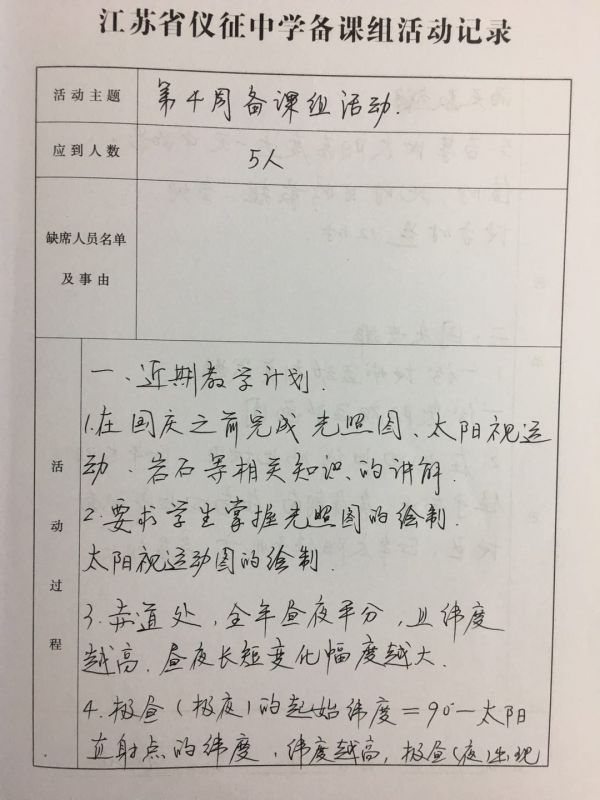 江苏省仪征中学备课组活动记录
活动主题
第4周备课组活动.
应到人数
5人
缺席人员名单
及事由
活动过程
一、近期教学计划.
1.在国庆之前完成光照图、太阳视运
动、岩石等相关知识的讲解.
2.要求学生掌握光照图的绘制.
太阳视运动图的绘制.
3.赤道处,全年昼夜平分,且纬度
越高.昼夜长短变化幅度越大.
4.极昼(极夜)的起始纬度=90°-太阳
直射点的纬度,纬度越高,极昼(夜)出现